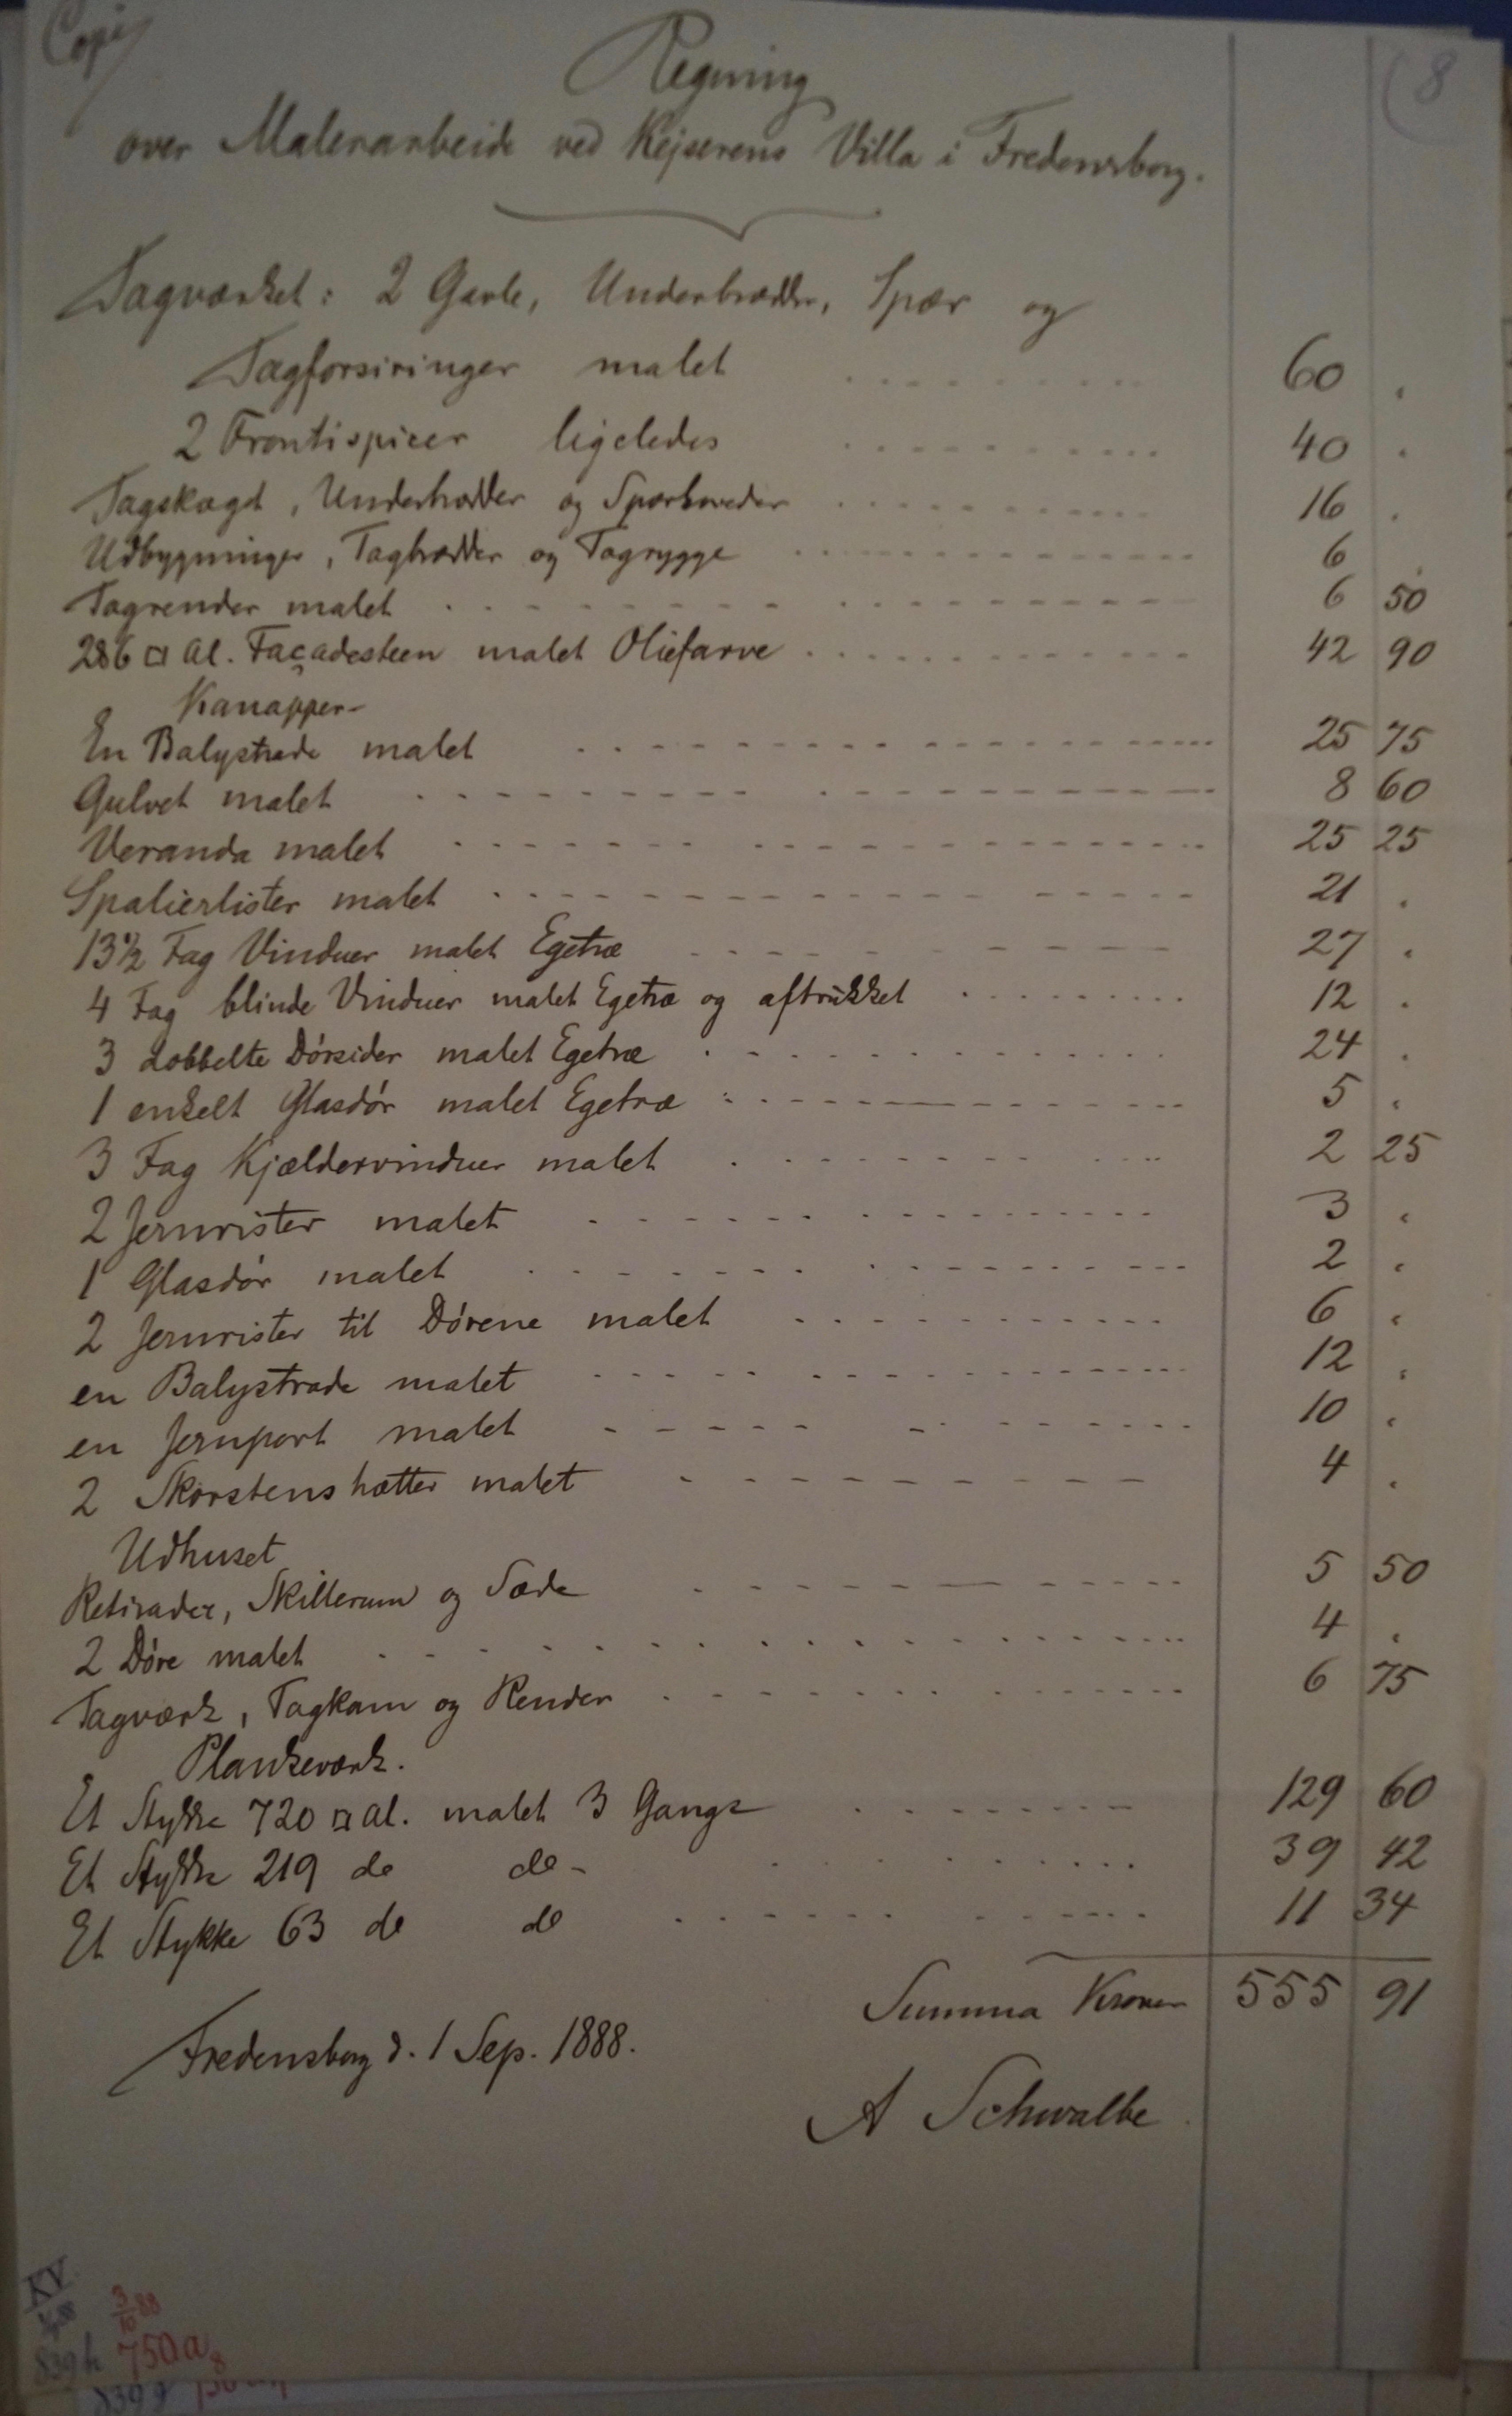 Copi
8
Regning
over Malerarbeide ved Kejserens Villa i Fredensborg.
Tagværket: 2 Gavle, Underbrædder, Spær og
Tagforsiringer malet 60 .
2 Frontispicer ligeledes 40 .
Tagskægt, Underbrædder og Spærhoveder 16 .
Udbygninger, Tagbrædder og Tagrygge 6 .
Tagrender malet 6 50
286 □ Al. Façadesteen malet Oliefarve 42 90
Kanapper-
En Balystrade malet 25 75
Gulvet malet 8 60
Veranda malet 25 25
Spalierlister malet 21 .
13½ Fag Vinduer malet Egetræ 27 .
4 Fag blinde Vinduer malet Egetræ og aftrukket 12 .
3 dobbelte Dörsider malet Egetræ 24 .
1 enkelt Glasdör malet Egetræ 5 .
3 Fag Kjældervinduer malet 2 25
2 Jernrister malet 3 .
1 Glasdör malet 2 .
2 Jernrister til Dörene malet 6 .
en Balystrade malet 12 .
en Jernport malet 10 .
2 Skorstenshætter malet 4 .
Udhuset
Retirader, Skillerum og Sæde 5 50
2 Döre malet 4 .
Tagværk, Tagkam og Render 6 75
Plankeværk.
Et Stykke 720 □ Al. malet 3 Gange 129 60
Et Stykke 219 do do - 39 42
Et Stykke 63 do do 11 34
Summa Kroner 555 91
Fredensborg d. 1 Sep. 1888.
A Schwalbe
KV 3/10 88
839h 750a8
839g